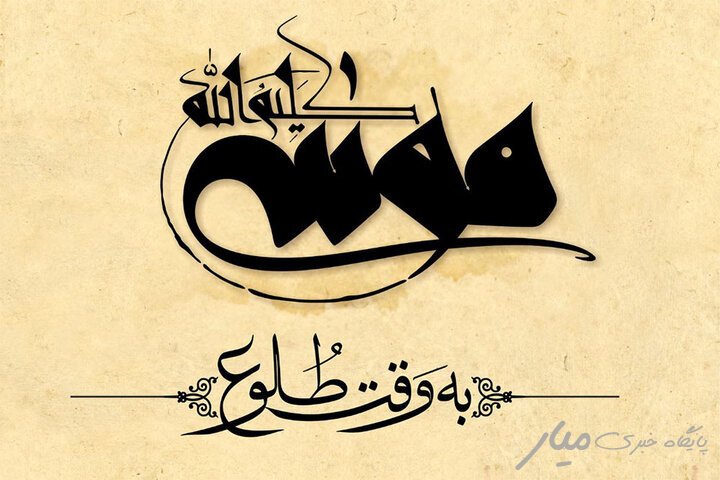 موسی
کلیم‌الله
به وقت طلوع
پایگاه خبری میار